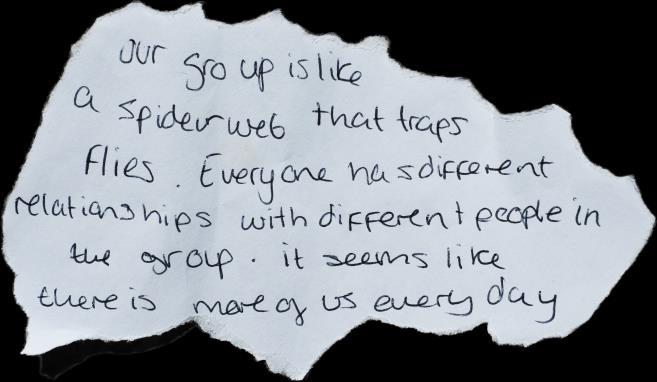 our group is like
a spider web that traps
flies. Everyone has different
relationships with different people in
the group. it seems like
there is more of us every day